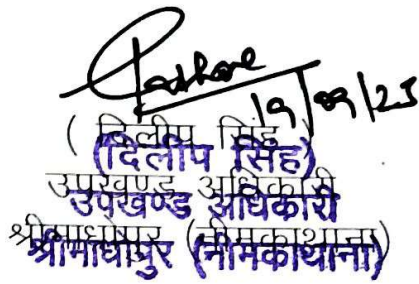 19/09/25
(दिलीप सिंह)
(दिलीप सिंह)
उपखण्ड अधिकारी
उपखण्ड अधिकारी
श्रीमाधोपुर (नीमकाथाना)
श्रीमाधोपुर (नीमकाथाना)